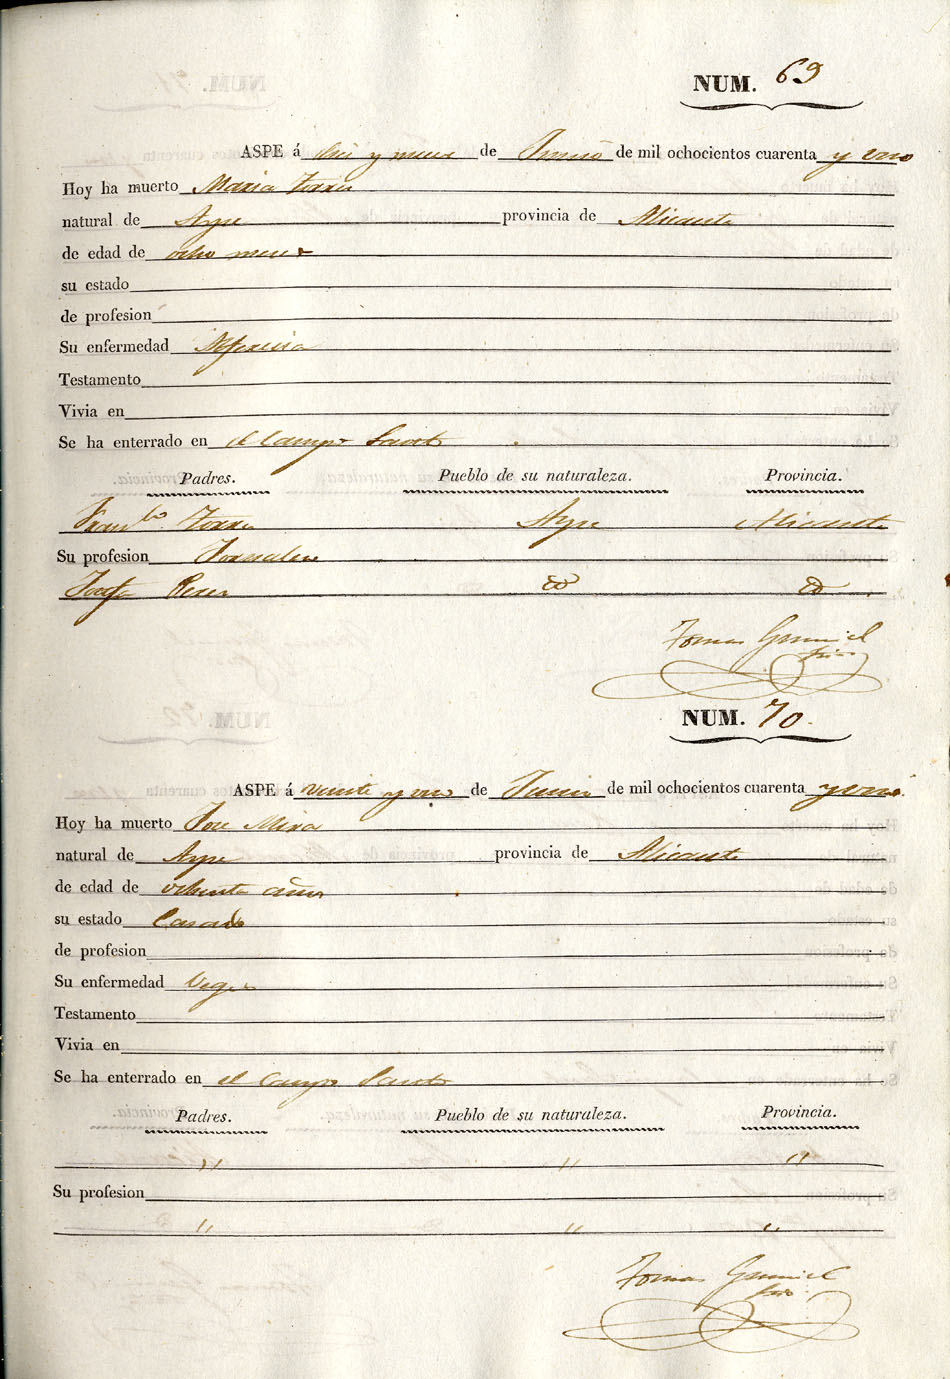 NUM. 69
ASPE á diez y nueve de Junio de mil ochocientos cuarenta y uno
Hoy ha muerto Maria Torres
natural de Aspe provincia de Alicante
de edad de ocho meses
su estado
de profesion
Su enfermedad Alferecia
Testamento
Vivia en
Se ha enterrado en el Campo Santo
Padres. Pueblo de su naturaleza. Provincia.
Franco. Torres Aspe Alicante
Su profesion Jornalero
Josefa Perez
Tomas
NUM. 70
ASPE á veinte y uno de Junio de mil ochocientos cuarenta y uno
Hoy ha muerto Jose Mira
natural de Aspe provincia de Alicante
de edad de ochenta años
su estado Casado
de profesion
Su enfermedad Vegez
Testamento
Vivia en
Se ha enterrado en el Campo Santo
Padres. Pueblo de su naturaleza. Provincia.
" " "
Su profesion
" " "
Tomas